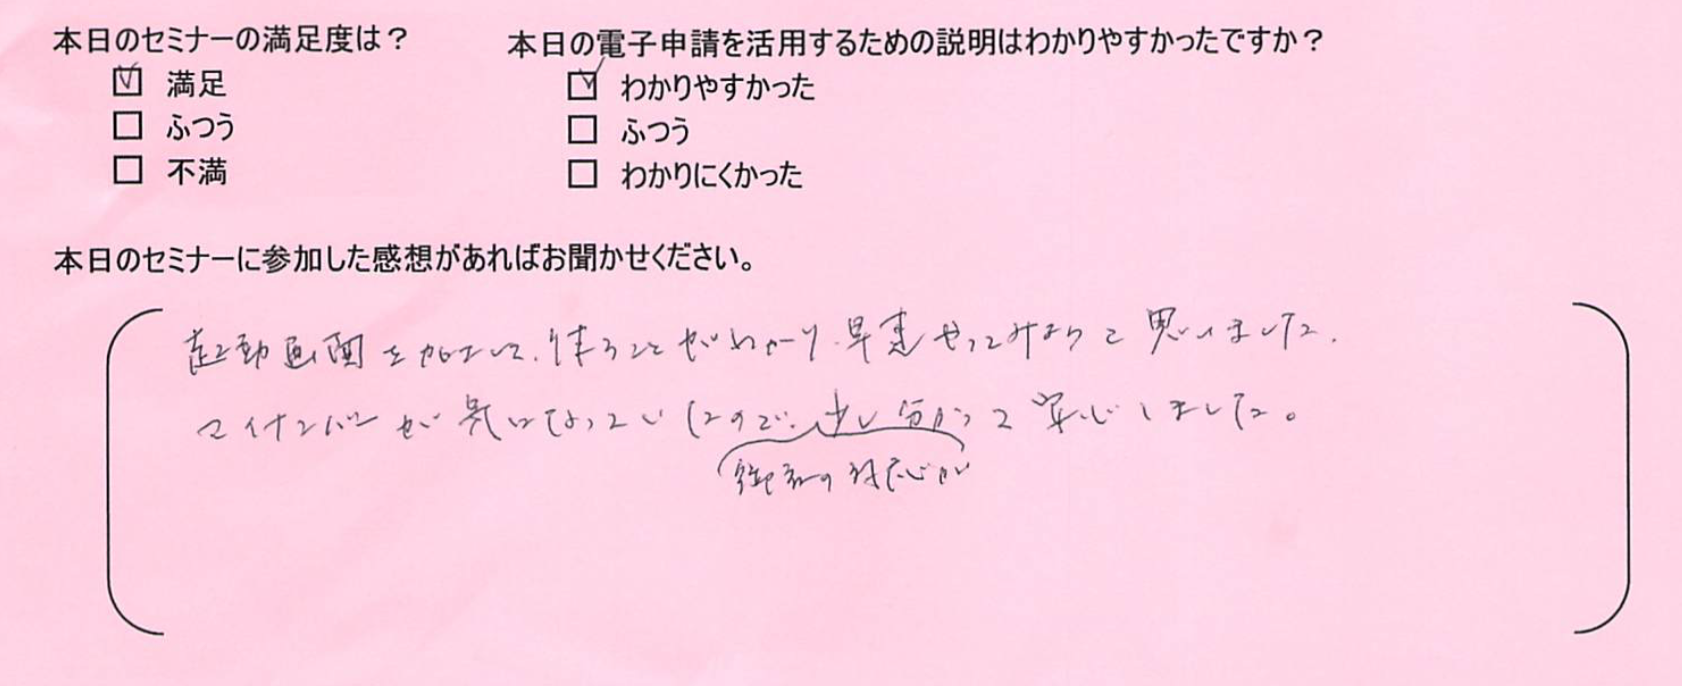 本日のセミナーの満足度は？
☑ 満足
☐ ふつう
☐ 不満
本日の電子申請を活用するための説明はわかりやすかったですか？
☑ わかりやすかった
☐ ふつう
☐ わかりにくかった
本日のセミナーに参加した感想があればお聞かせください。
起動画面を 使うことがわかり、早速やってみようと思いました。
マイナンバーが気になっていたので、少し分かって安心しました。
御社の対応が